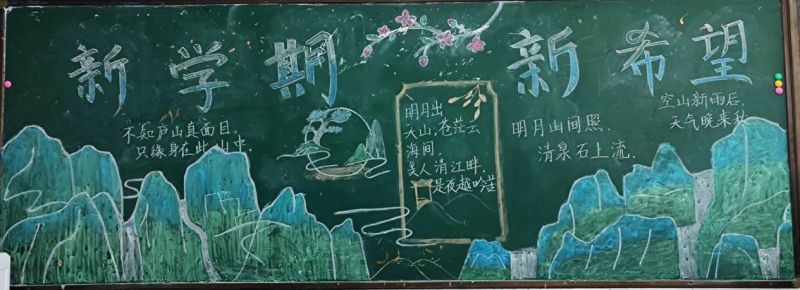 新学期 新希望
不知庐山真面目,
只缘身在此山中.
明月出
天山,苍茫云
海间.
美人清江畔,
是夜越吟苦
明月山间照,
清泉石上流.
空山新雨后,
天气晚来秋